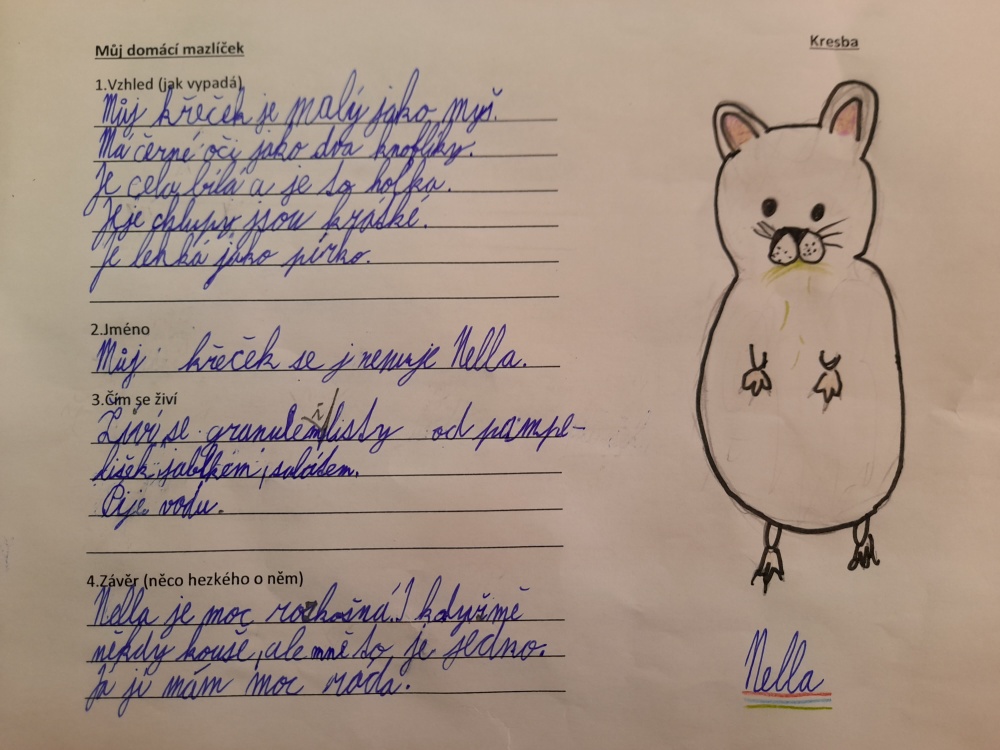 Můj domácí mazlíček
Kresba
1.Vzhled (jak vypadá)
Můj křeček je malý jako myš.
Má černé oči jako dva knoflíky.
Je celá bílá a je to holka.
Její chlupy jsou krátké.
Je lehká jako pírko.
2.Jméno
Můj křeček se jmenuje Nella.
3.Čím se živí
Živí se granulemi, listy od pampe-
lišek, jablkem, salátem.
Pije vodu.
4.Závěr (něco hezkého o něm)
Nella je moc rozkošná. I když mě
někdy kouše, ale mně to je jedno.
Já jí mám moc ráda.
Nella